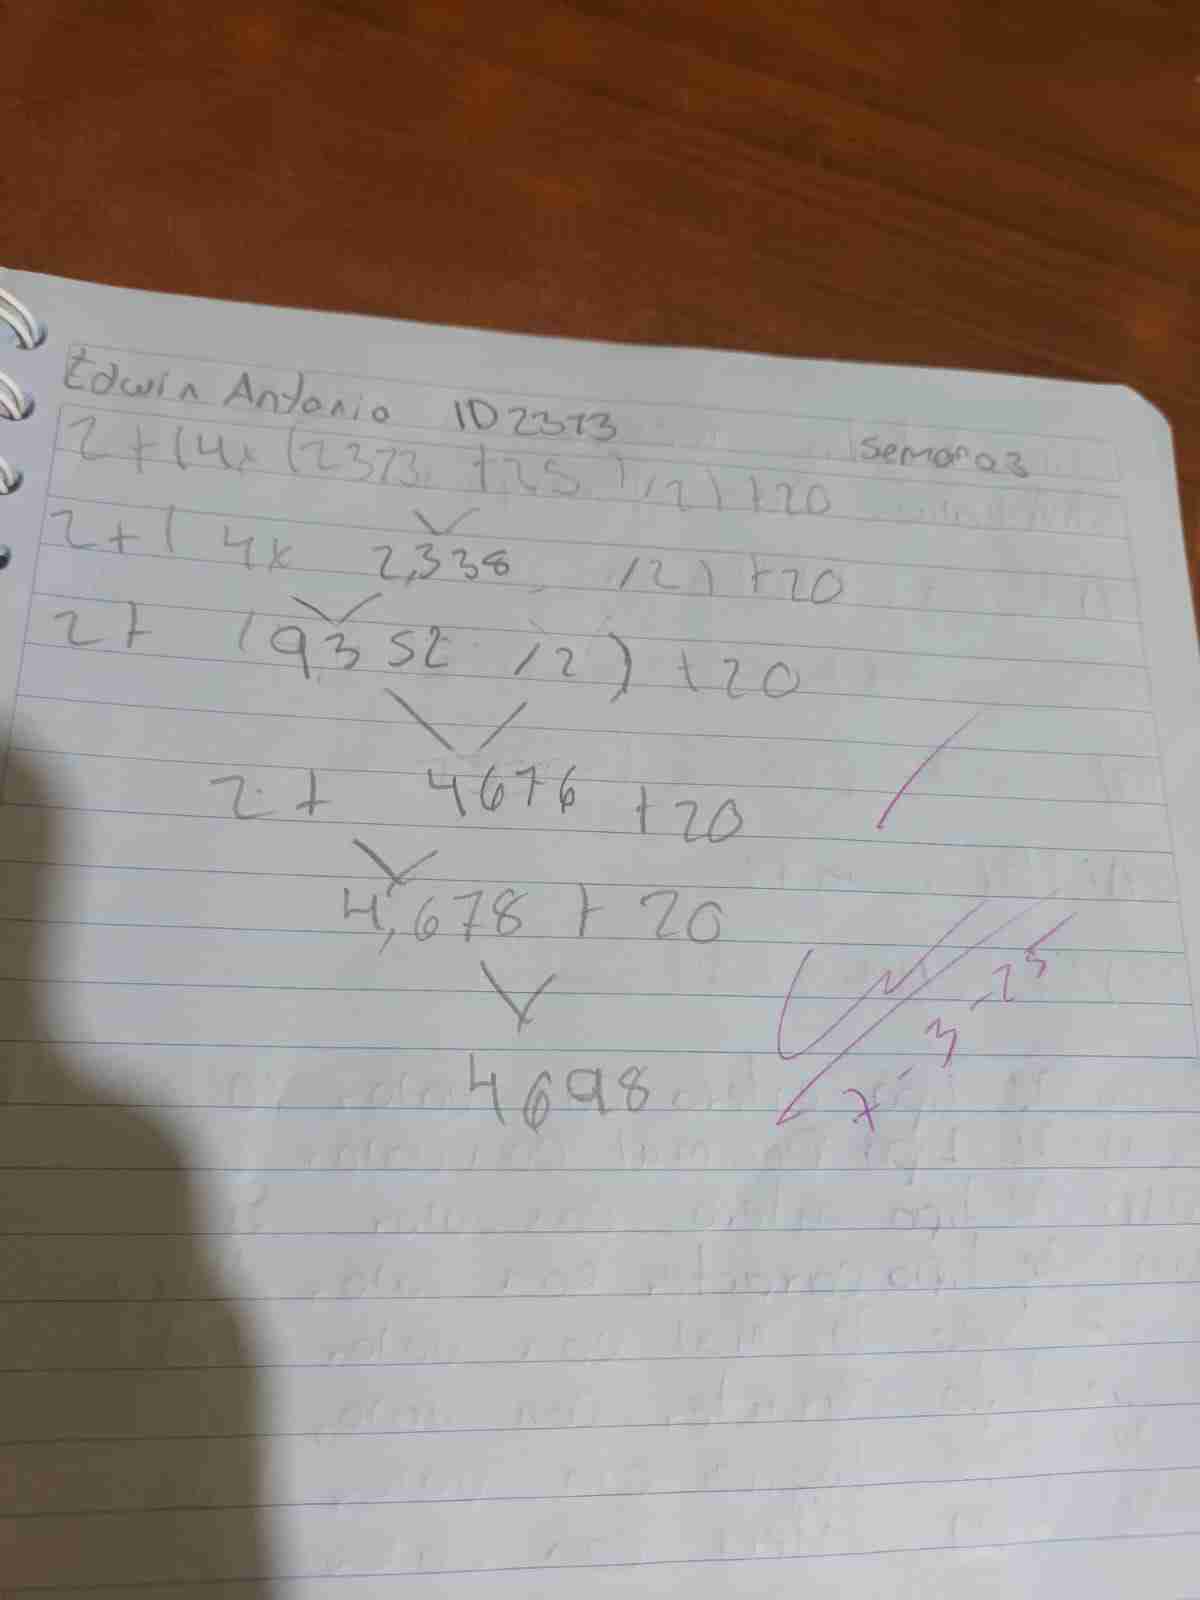 Edwin Antonio ID 2373
Semana 3
2+(4x (2373 +25 )/2)+20
2+( 4x 2,338 /2)+20
2+ (9,352 /2) +20
2+ 4676 +20
4,678 + 20
4698
7-3-25